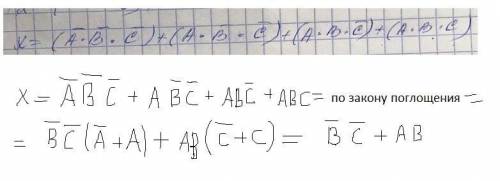 X = (A̅·B̅·C̅)+(A·B̅·C̅)+(A·B·C̅)+(A·B·C)
X = A̅ B̅ C̅ + A B̅ C̅ + ABC̅ + ABC = по закону поглощения =
= B̅ C̅ (A̅ + A) + AB (C̅ + C) = B̅ C̅ + AB